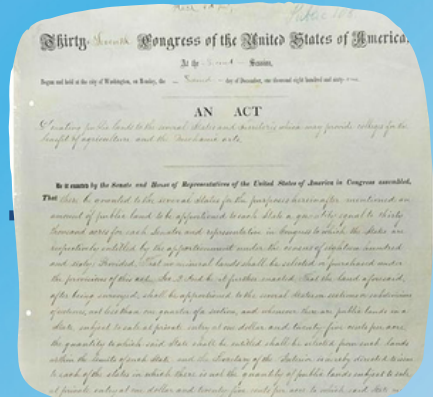 Public 108
Thirty-Seventh Congress of the United States of America,
At the Second Session,
Begun and held at the city of Washington, on Monday, the Second day of December, one thousand eight hundred and sixty-one.
AN ACT
Donating public lands to the several States and Territories which may provide colleges for the
benefit of agriculture and the Mechanic arts.
Be it enacted by the Senate and House of Representatives of the United States of America in Congress assembled,
That there be granted to the several States for the purposes hereinafter mentioned an
amount of public land to be apportioned to each State a quantity equal to thirty
thousand acres for each Senator and representative in Congress to which the States are
respectively entitled by the apportionment under the census of eighteen hundred
and sixty: Provided, That no mineral lands shall be selected or purchased under
the provisions of this act. Sec. 2. And be it further enacted, That the land aforesaid,
after being surveyed, shall be apportioned to the several States in sections or subdivisions
of sections, not less than one quarter of a section, and whenever there are public lands in a
State, subject to sale at private entry at one dollar and twenty five cents per acre,
the quantity to which said State shall be entitled shall be selected from such lands
within the limits of such State, and the Secretary of the Interior is hereby directed to issue
to each of the States in which there is not the quantity of public lands subject to sale
at private entry at one dollar and twenty five cents per acre to which said State